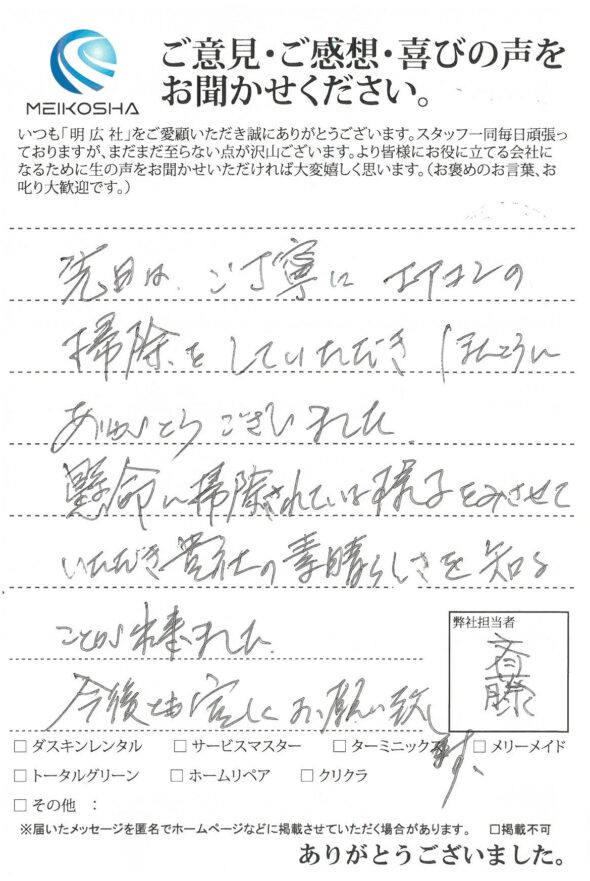 MEIKOSHA
ご意見・ご感想・喜びの声を
お聞かせください。
いつも「明広社」をご愛顧いただき誠にありがとうございます。スタッフ一同毎日頑張っ
ておりますが、まだまだ至らない点が沢山ございます。より皆様にお役に立てる会社に
なるために生の声をお聞かせいただければ大変嬉しく思います。（お褒めのお言葉、お
叱り大歓迎です。）
先日は、ご丁寧に エアコンの
掃除をしていただき ほんとうに
ありがとうございました。
懸命に掃除されている様子をみさせて
いただき貴社の素晴らしさを知る
ことが出来ました。
今後とも宜しくお願い致します。
弊社担当者
斉藤
□ ダスキンレンタル □ サービスマスター □ ターミニックス □ メリーメイド
□ トータルグリーン □ ホームリペア □ クリクラ
□ その他 ：
※届いたメッセージを匿名でホームページなどに掲載させていただく場合があります。 □掲載不可
ありがとうございました。